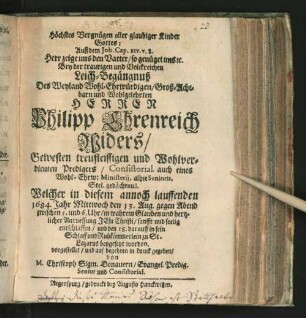 Höchstes Vergnügen aller glaubiger Kinder
Gottes:
Auß dem Joh. Cap. XIV. v. 8.
Herr zeige uns den Vatter/ so genüget uns ꝛc.
Bey der traurigen und Volckreichen
Leich-Begängnuß
Des Weyland Wohl-Ehrwürdigen/ Groß-Acht-
barn und Wohlgelehrten
HERREN
Philipp Ehrenreich
Widers/
Gewesten treufleissigen und Wohlver-
dienten Predigers/ Consistorial. auch eines
Wohl-Ehrw: Ministerij, allhie Senioris,
Seel. gedächtnuß.
Welcher in diesem annoch lauffenden
1684. Jahr Mittwoch den 13. Aug. gegen Abend
zwischen 5. und 6. Uhr/ in wahrem Glauben und hertz-
licher Anruffung JEsu Christi/ sanfft und seelig
entschlaffen/ und den 18. darauf in sein
Schlaff und Ruhkämmerlein zu St.
Lazarus beygesetzt worden.
vorgestellet/ und auf begehren in druck gegeben/
von
M. Christoph Sigm. Donauern/ Evangel. Predig.
Senior und Consistorial.
Regenspurg/ gedruckt bey Augusto Hanckwitzen.